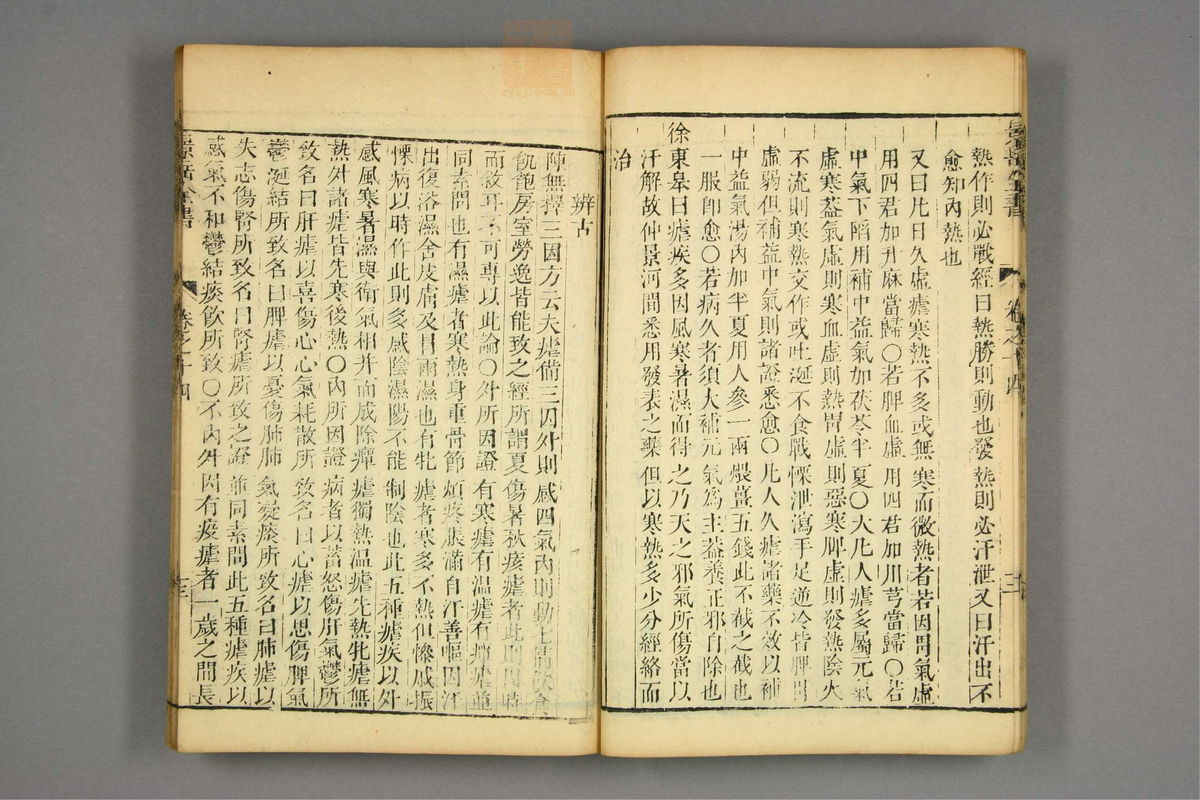 熱作則必戰經曰熱勝則動也發熱則必汗泄又曰汗出不
愈知內熱也
又曰凡日久虛瘧寒熱不多或無寒而微熱者若因胃氣虛
用四君加升麻當歸〇若脾血虛用四君加川芎當歸〇若
中氣下陷用補中益氣加茯苓半夏〇大凡人瘧多屬元氣
虛寒葢氣虛則寒血虛則熱胃虛則惡寒脾虛則發熱陰火
不流則寒熱交作或吐涎不食戰慄泄瀉手足逆冷皆脾胃
虛弱但補益中氣則諸證悉愈〇凡人久瘧諸藥不效以補
中益氣湯內加半夏用人參一兩煨薑五錢此不截之截也
一服卽愈〇若病久者須大補元氣爲主葢養正邪自除也
徐東皋曰瘧疾多因風寒暑濕而得之乃天之邪氣所傷當以
汗解故仲景河間悉用發表之藥但以寒熱多少分經絡而
治
景岳全書
卷之十四
十三
辨古
陳無擇三因方云夫瘧備三因外則感四氣內則動七情飲食
飢飽房室勞逸皆能致之經所謂夏傷暑秋痎瘧者此則以時
而敘耳不可專以此論〇外所因證有寒瘧有溫瘧有癉瘧並
同素問也有濕瘧者寒熱身重骨節煩疼脹滿自汗善嘔因汗
出復浴濕舍皮膚及冒雨濕也有牝瘧者寒多不熱但慘慼振
慄病以時作此則多感陰濕陽不能制陰也此五種瘧疾以外
感風寒暑濕與衛氣相并而成除癉瘧獨熱溫瘧先熱牝瘧無
熱外諸瘧皆先寒後熱〇內所因證病者以蓄怒傷肝氣鬱所
致名曰肝瘧以喜傷心心氣耗散所致名曰心瘧以思傷脾氣
鬱涎結所致名曰脾瘧以憂傷肺肺氣凝痰所致名曰肺瘧以
失志傷腎所致名曰腎瘧所致之證並同素問此五種瘧疾以
感氣不和鬱結痰飲所致〇不內外因有疫瘧者一歲之間長
景岳全書
卷之十四
十三
zysj.com.cn